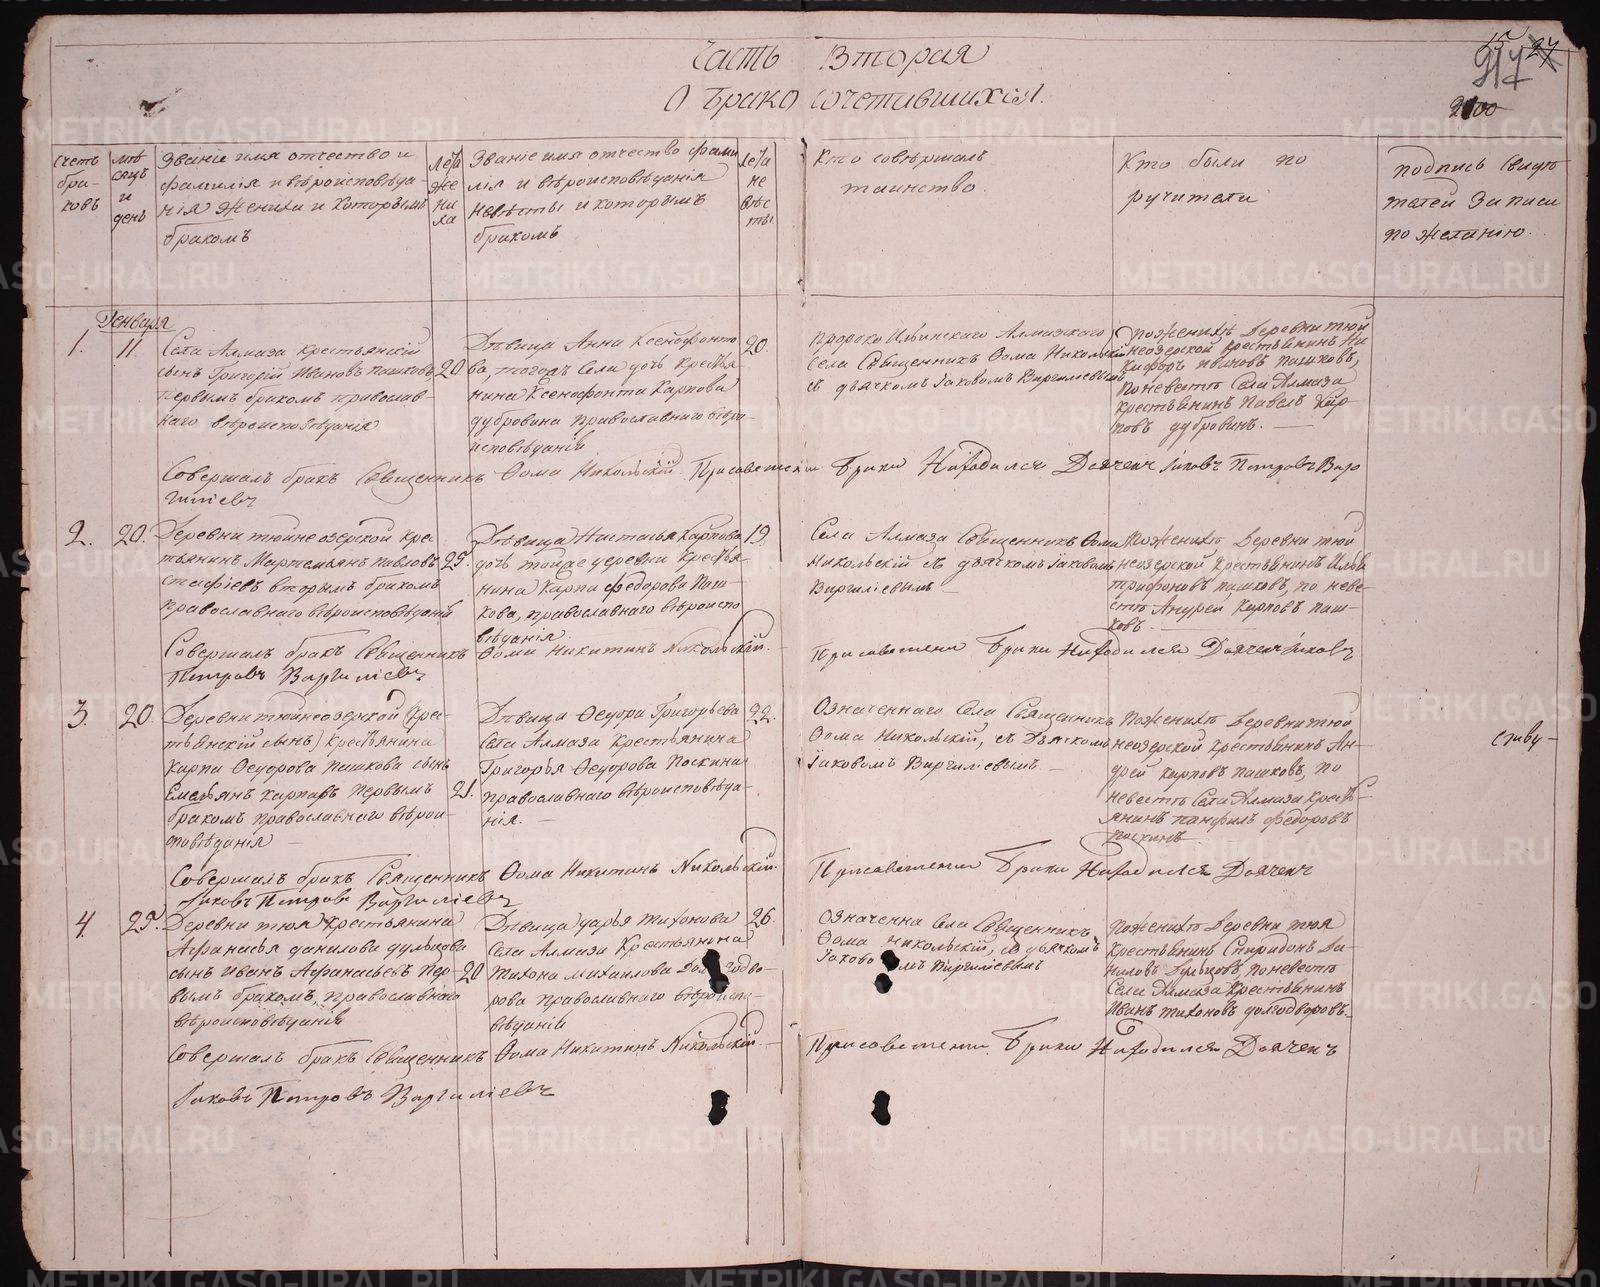 Часть Вторая
О Брако сочетавшихся.
27
2100
счетъ браковъ
мѣсяцъ и день
Званіе имя отчество и
фамилія и вѣроисповѣда-
нія Жениха и Которымъ
бракомъ
лѣта жениха
Званіе имя отчество фами
лія и вѣроисповѣданія
Невѣсты и которымъ
бракомъ
лѣта невѣсты
Кто совѣршалъ
таинство.
Кто были по
ручители
подпись Свидѣ
телей Записи
по желанію.
Генваря
1.
11.
Села Алмаза Крестьянскій
сынъ Григорій Ивановъ пашковъ
первымъ бракомъ православ-
наго вѣроисповѣданія
20
Дѣвица Анна Ксенофонто
ва, тогожъ Села дочь Крестья-
нина Ксенофонта Карпова
дубровина православнаго вѣро
исповѣданія
20.
пророко Ильинскаго Алмазскаго
Села Священникъ Ѳома Никольскій
съ дьячкомъ Іаковомъ Виргилиевымъ
По женихѣ Деревни тюй
неозерской крестьянинъ Ни
кифоръ ивановъ пашковъ,
по невестѣ Села Алмаза
крестьянинъ Павелъ Кар-
повъ дубровинъ.
Совершалъ бракъ Священникъ Ѳома Никольскій. При совешении Браки Находился Дьячекъ Іаковъ Петровъ Вир
гиліевъ
2.
20.
Деревни тюйнеозерской Кре
тьянинъ Мартемьянъ павловъ
стафіевъ вторымъ бракомъ
православнаго вѣроисповѣданія
25.
Дѣвица Настасья Карпова
дочь тойже деревни Крестья-
нина Карпа Федорова Паш-
кова, православнаго вѣроиспо
вѣданія
19
Села Алмаза Священникъ Ѳома
Никольскій съ дьячкомъ Іаковомъ
Виргиліевымъ
По женихѣ Деревни тюй
неозерской Крестьянинъ Илья
трифоновъ пашковъ, по неве-
стѣ Андрей Карповъ паш-
ковъ.
Совершалъ бракъ Священникъ Ѳома Никитинъ Никольскій. При совешении Браки Находился Дьячекъ Іаковъ
Петровъ Виргиліевъ
3.
20.
Деревни тюйнеозерской (Кре-
тьянскій сынъ) Крестьянина
Карпа Ѳедорова Пашкова сынъ
Емельянъ Карповъ Первымъ
бракомъ православнаго вѣрои-
сповѣданія
21.
Дѣвица Ѳедора Григорьева
Села Алмаза Крестьянина
Григорья Ѳедорова Поскина
православнаго вѣроисповѣда-
нія.
22.
Означеннаго Села Священникъ
Ѳома Никольскій, съ Дьячкомъ
Іаковомъ Виргиліевымъ
По женихѣ Деревни тюй
неозерской крестьянинъ Ан-
дрей Карповъ Пашковъ, по
невестѣ Села Алмаза Кресть-
янинъ панфилъ федоровъ
поскинъ
Совершалъ бракъ Священникъ Ѳома Никитинъ Никольскій. При совешении Браки Находился Дьячекъ
Іаковъ Петровъ Виргиліевъ
4.
25.
Деревни тюя Крестьянина
Афанасья данилова дульцова
сынъ Иванъ Афанасьевъ Пер-
вымъ бракомъ, православнаго
вѣроисповѣданія
20
Дѣвица дарья тихонова
Села Алмаза Крестьянина
тихона михаилова Долгодво-
рова православнаго вѣроиспо-
вѣданія
26.
Означенна Села Священникъ
Ѳома Никольскій, съ дьячкомъ
Іаковомъ Виргиліевымъ
По женихѣ Деревни тюя
Крестьянинъ Спиридонъ Да-
ниловъ Дульцовъ, по невестѣ
Села Алмаза Крестьянинъ
Иванъ тихоновъ долгодворовъ.
Совершалъ бракъ Священникъ Ѳома Никитинъ Никольскій. При совешении Браки Находился Дьячекъ
Іаковъ Петровъ Виргиліевъ
METRIKI.GASO-URAL.RU